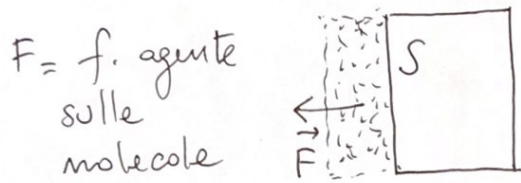 F = f. agente
sulle
molecole
S
F